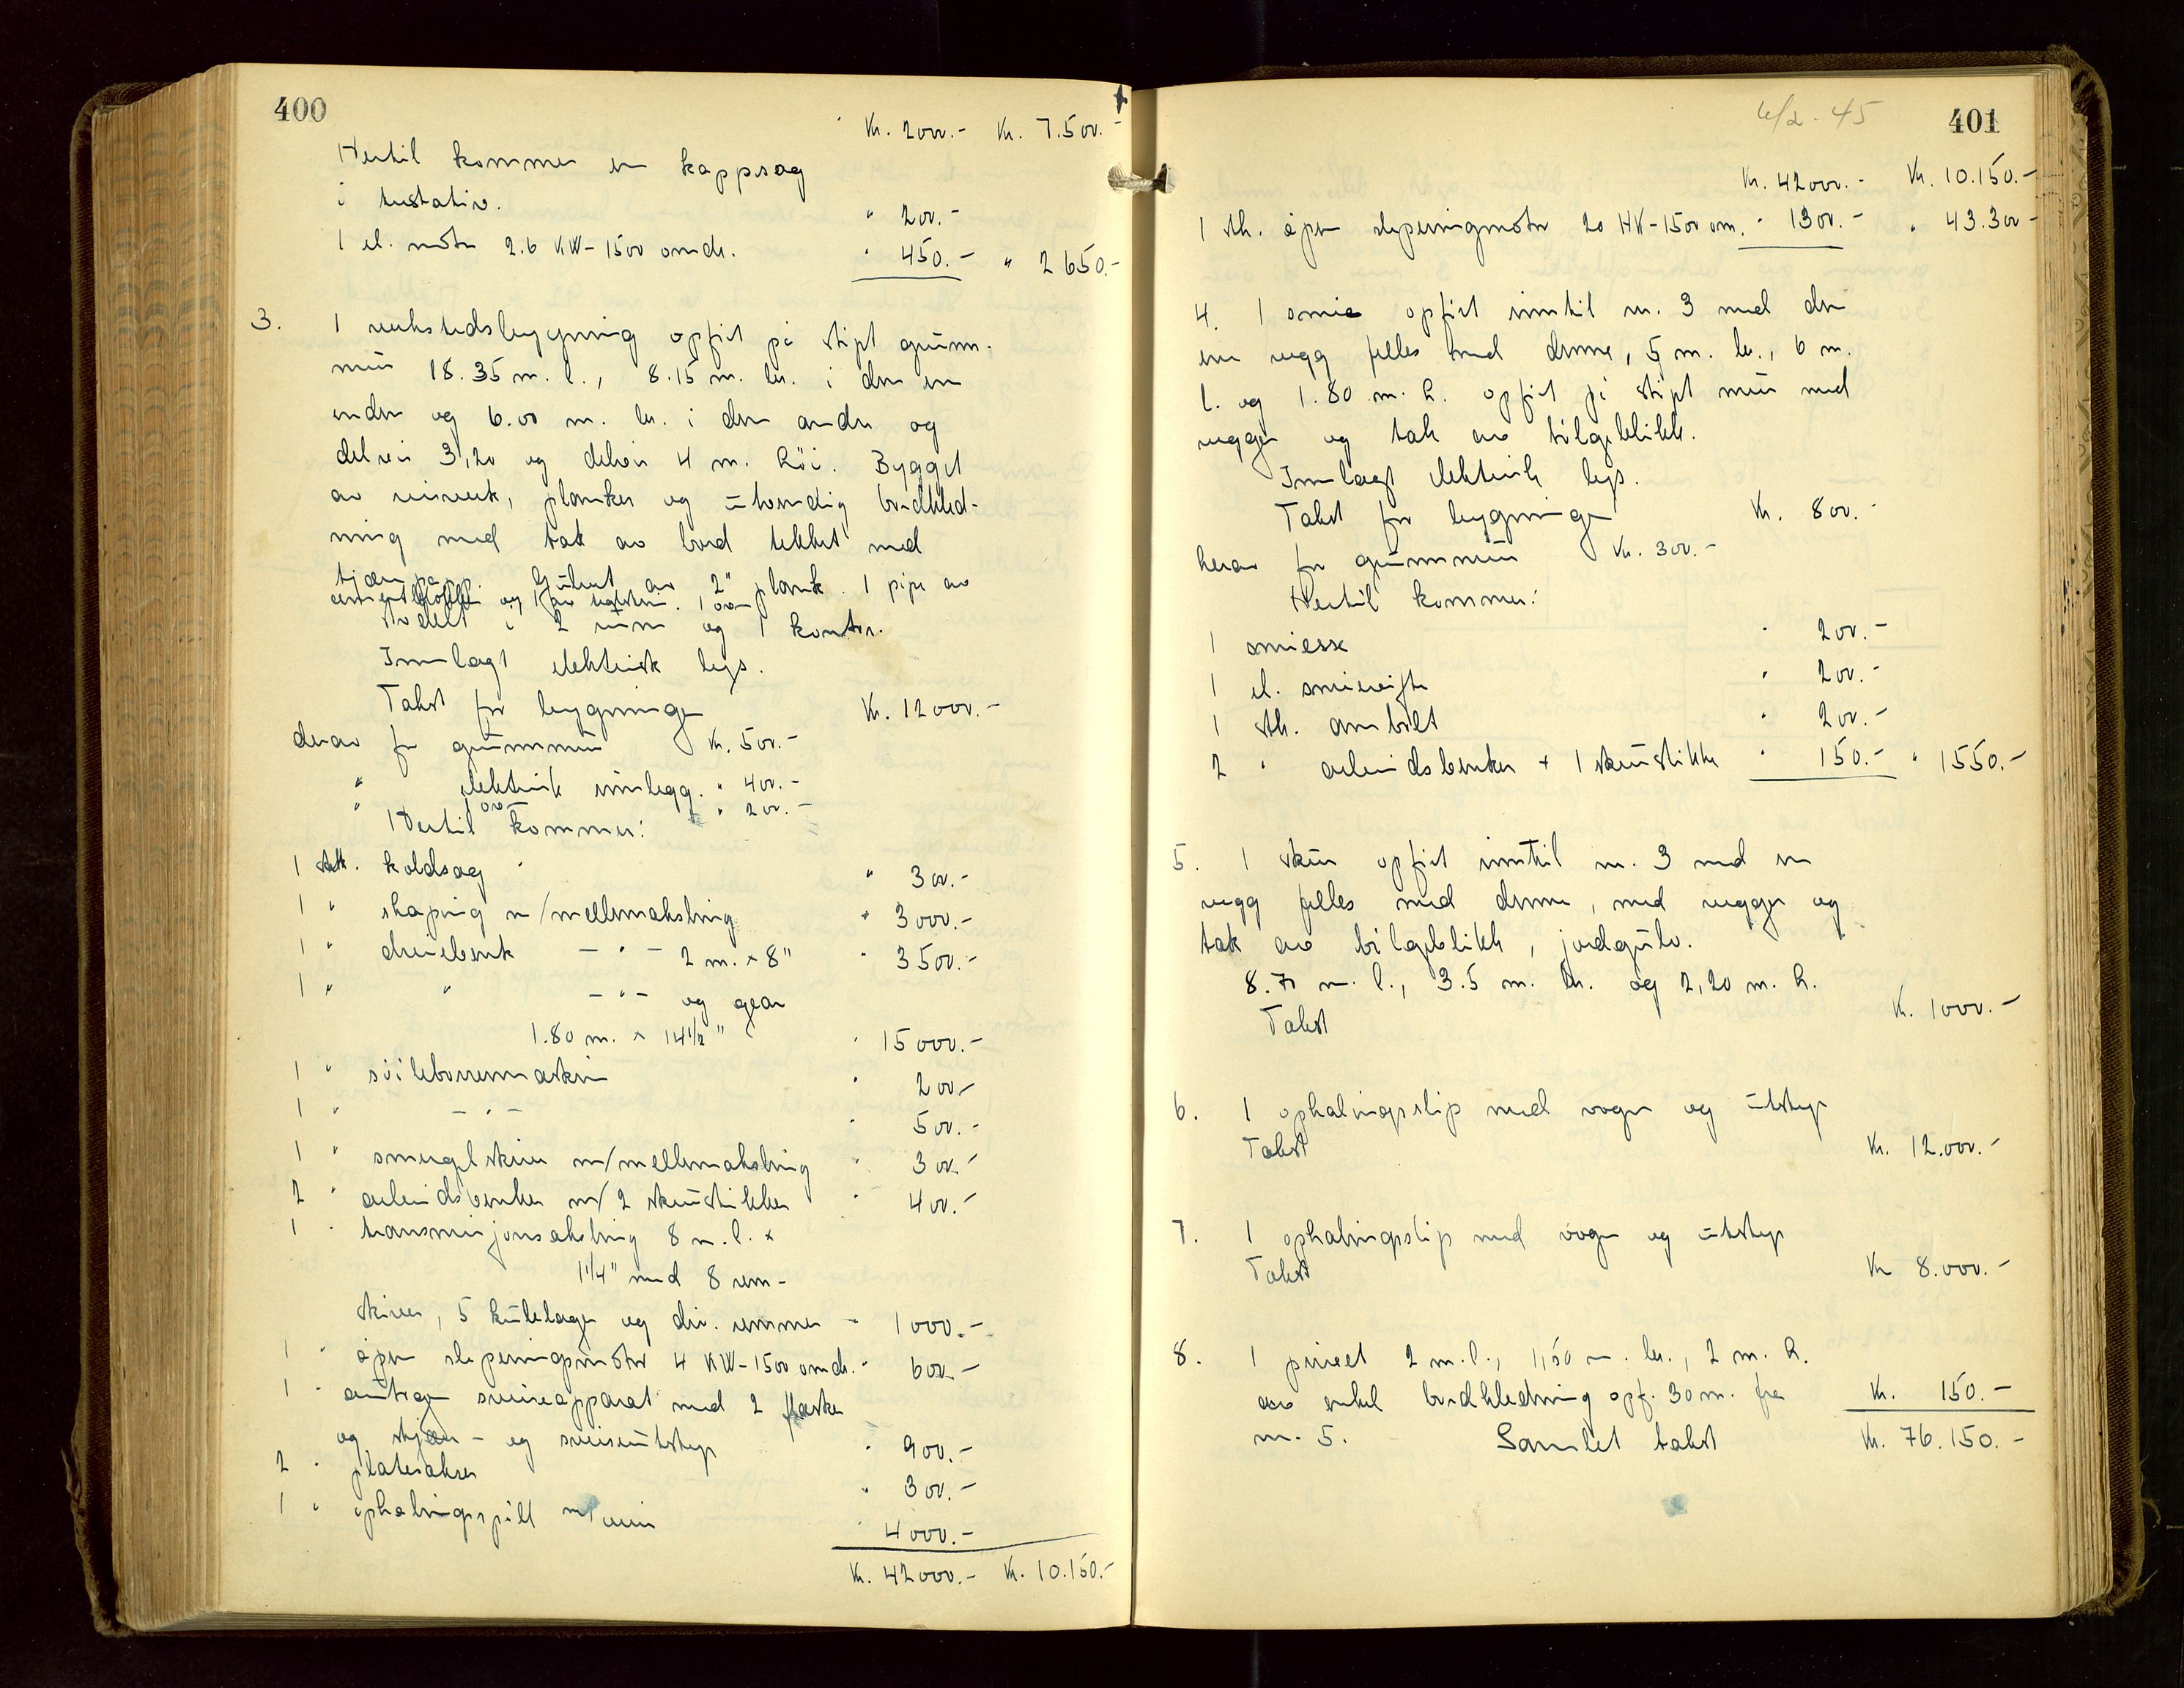 400
Kr. 2000.- Kr. 7.500.-
Hertil kommer en kappsag
i trestativ. " 200.-
1 el. motor 2.6 KW-1500 omdr. " 450.- " 2650.-
3. 1 verkstedsbygning opført på støpt grunn-
mur 18.35 m. l., 8.15 m. br. i den ene
enden og 6.00 m. br. i den andre og
delvis 3,20 og delvis 4 m. høi. Bygget
av reisverk, planker og utvendig bordkled-
ning med tak av bord tekket med
tjærepapp. Gulvet av 2" plank. 1 pipe av
og 1 av teglsten. 1 ovn
Avdelt i 2 rum og 1 kontor.
Innlagt elektrisk lys.
Takst for bygningen Kr. 12000.-
derav for grunnmur Kr. 500.-
" elektrisk innlegg. " 400.-
" ovn " 200.-
Hertil kommer:
1 stk. koldsag " 300.-
1 " shaping m/mellemaksling " 3000.-
1 " dreiebenk - " - 2 m. x 8" " 3500.-
1 " " - " - og gear
1.80 m. x 14 1/2" " 15000.-
1 " søileboremaskin " 200.-
1 " - " - " 500.-
1 " smergelskive m/mellemaksling " 300.-
2 " arbeidsbenker m/2 skrustikker " 400.-
1 " transmisjonsaksling 8 m. l. x
1 1/4" med 8 rem-
skiver, 5 kulelager og div. remmer " 1000.-
1 " åpen sleperingmotor 4 KW-1500 omdr. " 600.-
1 " autogen sveiseapparat med 2 flasker
og skjære- og sveiseutstyr " 900.-
2 " platesakser " 300.-
1 " ophalingsspill m/wire " 4000.-
Kr. 42000.- Kr. 10.150.-
6/2-45
401
Kr. 42000.- Kr. 10.150.-
1 stk. åpen sleperingmotor 20 HK-1500 om. " 1300.- " 43.300-
4. 1 smie opført inntil nr. 3 med den
ene vegg felles med denne, 5 m. br., 6 m.
l. og 1.80 m. h. opført på støpt mur med
vegger og tak av bølgeblikk.
Innlagt elektrisk lys.
Takst for bygningen Kr. 800.-
herav for grunnmur Kr. 300.-
Hertil kommer:
1 smiesse " 200.-
1 el. smievifte " 200.-
1 stk. ambolt " 200.-
2 " arbeidsbenker + 1 skrustikke " 150.- " 1550.-
5. 1 skur opført inntil nr. 3 med en
vegg felles med denne, med vegger og
tak av bølgeblikk, jordgulv.
8.70 m. l., 3.5 m. br. og 2,20 m. h.
Takst Kr. 1000.-
6. 1 ophalingsslip med vogn og utstyr
Takst Kr. 12.000.-
7. 1 ophalingsslip med vogn og utstyr
Takst Kr 8.000.-
8. 1 privet 2 m. l., 1,50 m. br., 2 m. h.
av enkel bordkledning opf. 30 m. fra Kr. 150.-
nr. 5. Samlet takst Kr. 76.150.-